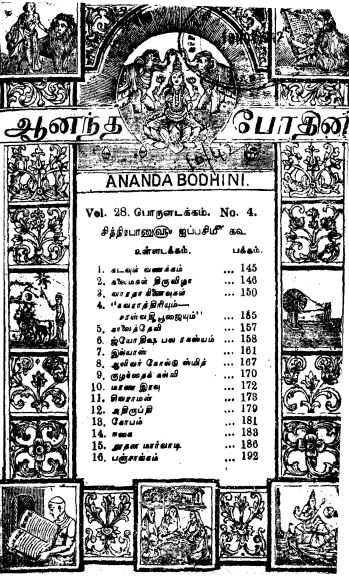 ஆனந்த போதினி
ANANDA BODHINI.
Vol. 28. பொருளடக்கம். No. 4.
சித்திரபானுஸ்ரீ ஐப்பசிமீ கஉ
உள்ளடக்கம். பக்கம்.
1. கடவுள் வணக்கம் ... 145
2. கலைமகள் திருவிழா ... 146
3. வாரதா நினைவுகள் ... 150
4. "நவராத்திரியும்—
சரஸ்வதி பூஜையும்" ... 155
5. காலைத்தேவி ... 157
6. ஜ்யோதிஷ பல ரகஸ்யம் ... 158
7. இல்யாஸ் ... 161
8. ஆலிவர் கோல்டு ஸ்மித் ... 167
9. குழந்தைக் கல்வி ... 170
10. மாண இரவு ... 172
11. சிவராமன் ... 173
12. அதிருப்தி ... 179
13. கோபம் ... 181
14. ஈகை ... 183
15. நூதன மார்வாடி ... 186
16. பஞ்சாங்கம் ... 192